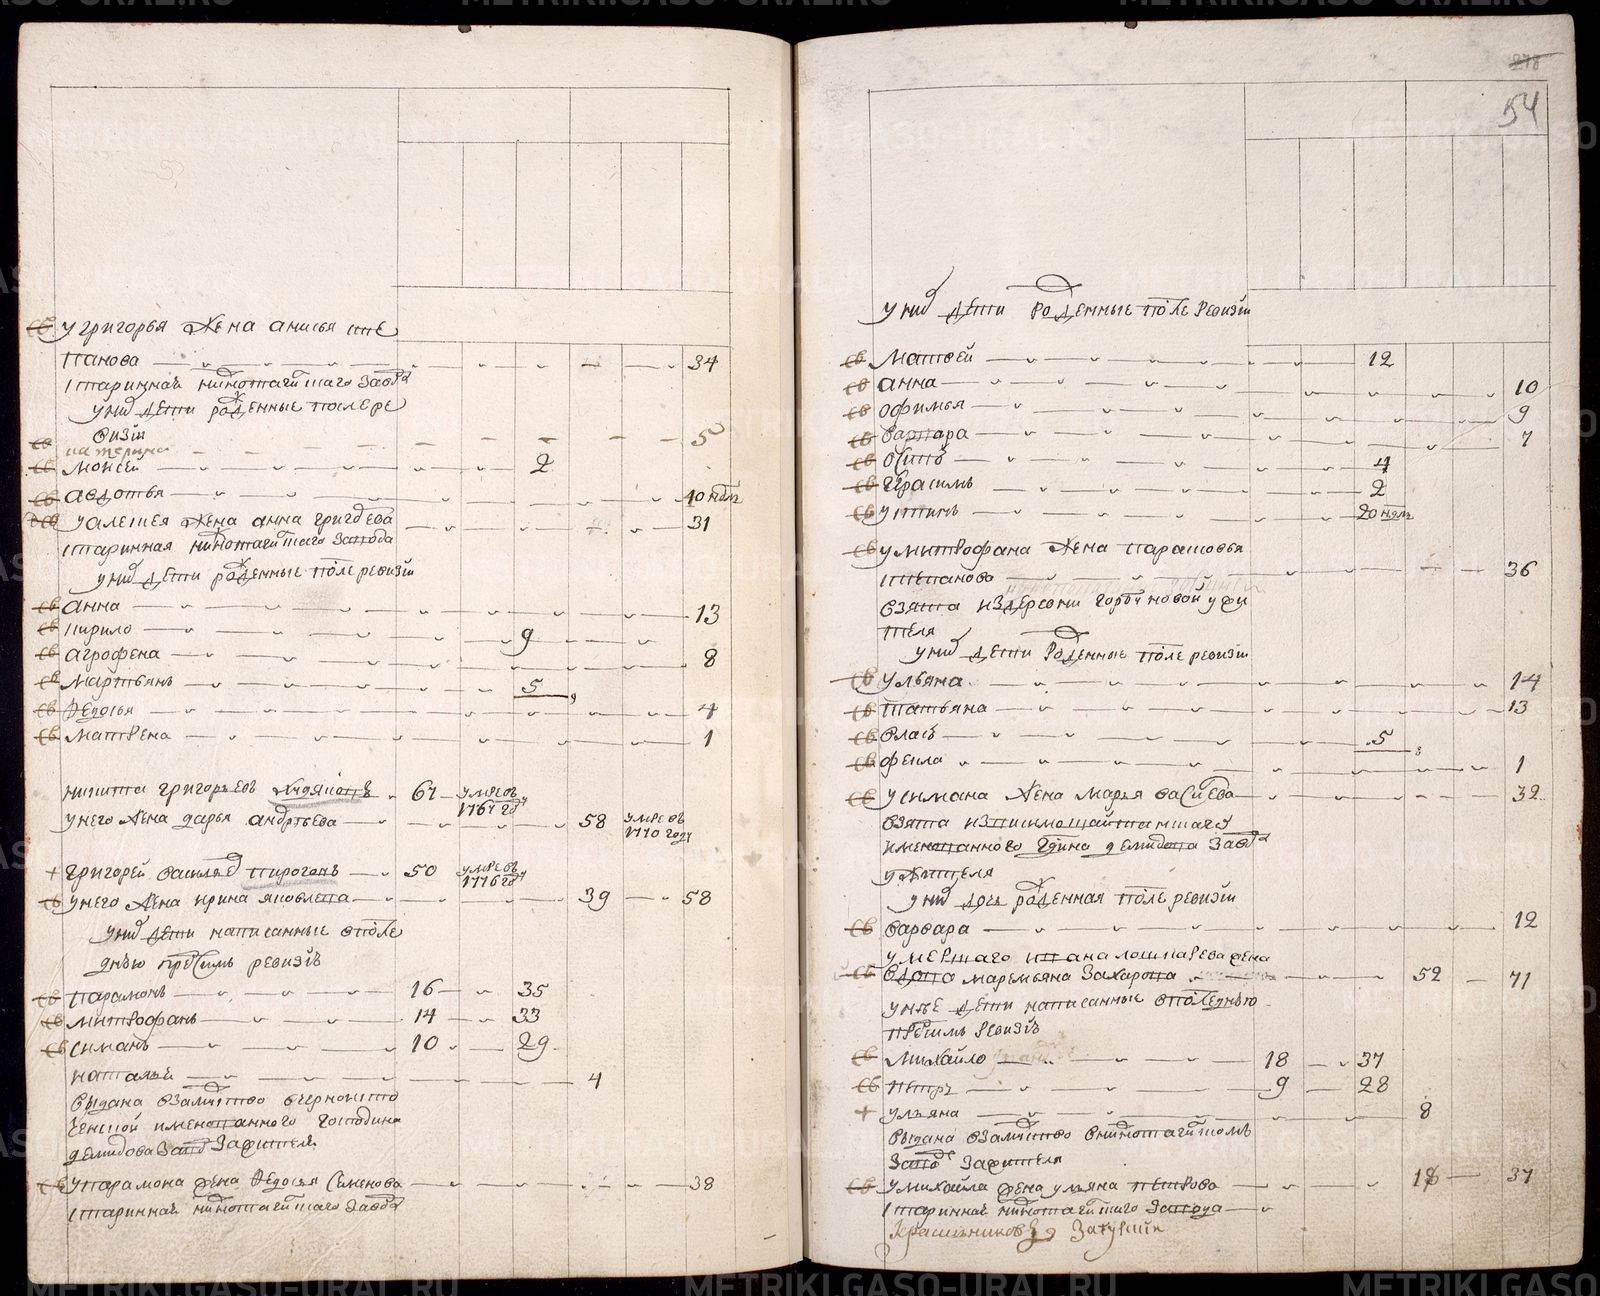 у григорья жена анисья сте
панова 34
старинная нижнотагильскаго завода
у них дети рожденные после ре
визии
катерина 5
моисей 2
авдотья 10 ндль
у алексея жена анна григорьева 31
старинная нижнотагильскаго завода
у них дети рожденные после ревизии
анна 13
кирило 9
агрофена 8
мартьянъ 5
федосья 4
матрена 1
никита григорьевъ худяковъ 67 умре въ
1767 году
у него жена дарья андреева 58 умре въ
1770 году
григорей васильевъ пироговъ 50 умре въ
1776 году
у него жена ирина яковлева 39 58
у них дети написанные в после
днъю пред симъ ревизiю
парамонъ 16 35
митрофанъ 14 33
симанъ 10 29
наталья 4
выдана в замужство в черноисто
ченской именованного господина
демидова завод за жителя
у парамона жена федосья семенова 38
старинная нижнотагильскаго завода
54
у них дети рожденные после ревизии
матвей 12
анна 10
офимья 9
варвара 7
осипъ 4
герасимъ 2
устинъ 20 ндль
у митрофана жена парасковья
степанова 36
взята из деревни горбуновой у жи
теля
у них дети рожденные после ревизии
ульяна 14
татьяна 13
власъ 5
фекла 1
у симана жена марья васильева 32
взята
именованного гдина демидова завода
у жителя
у них дочь рожденная после ревизии
варвара 12
умершаго ивана лошкарева жена
вдова маремьяна захарова 52 71
у нъе дети написанные в последнъю
пред симъ ревизiю
михайло 18 37
петръ 9 28
ульяна 8
выдана в замужство в нижнотагильскомъ
заводе за жителя
у михайла жена ульяна петрова 18 37
старинная нижнотагильскаго завода